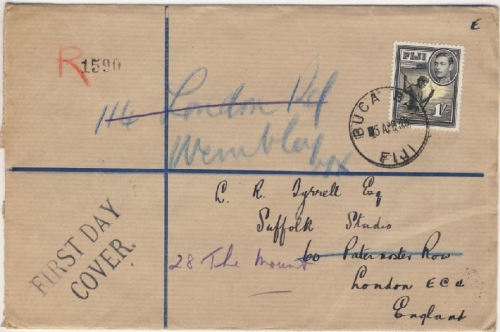 E
R 1590
FIJI
1/-
BUCA B
5 AP
FIJI
114 London Rd
Wembley
FIRST DAY
COVER.
L. R. Tyrrell Esq
Suffolk Studio
60 Paternoster Row
28 The Mount
London E.C.4
England